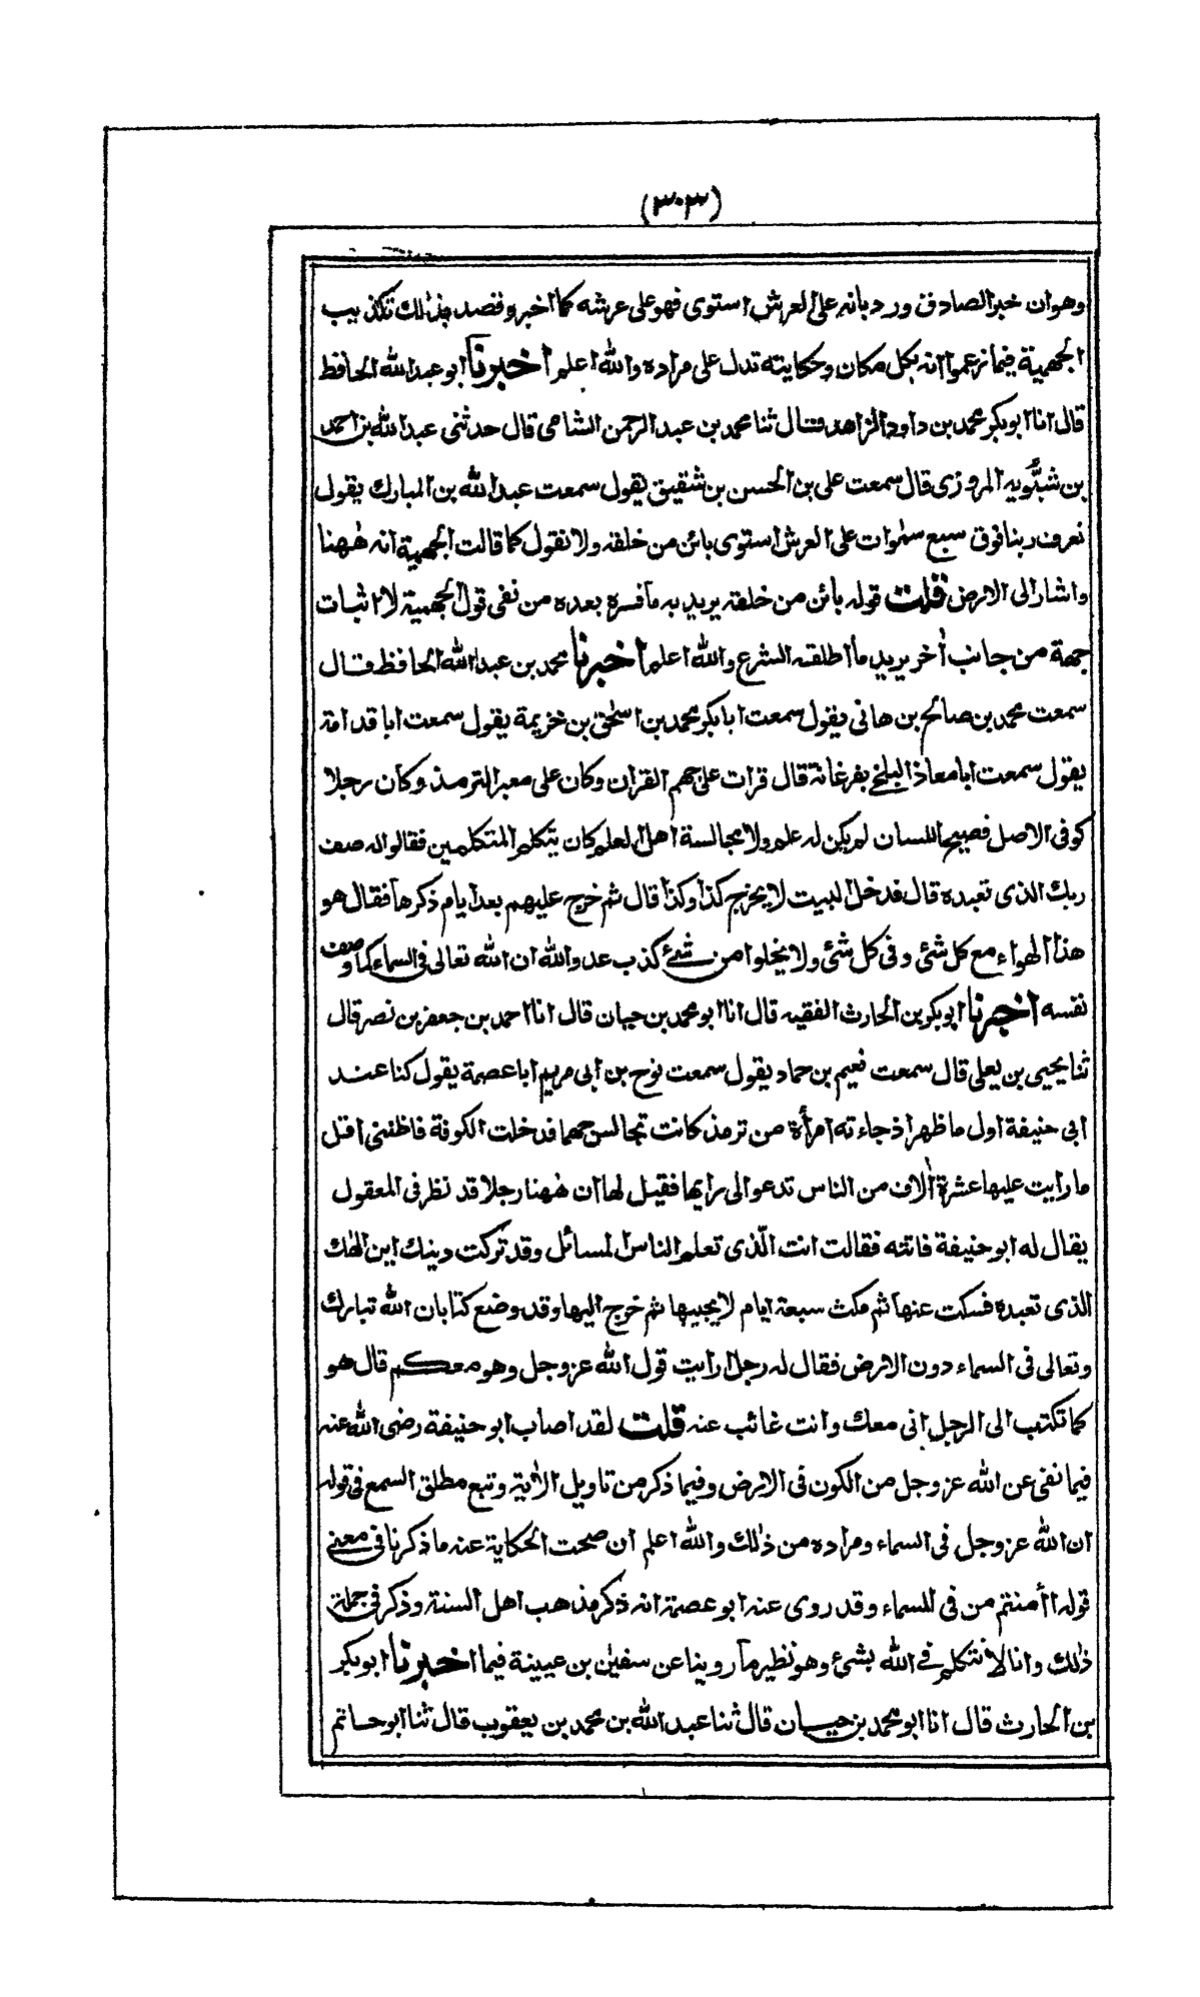 (٣٠٣)
وهو ان خبر الصادق ورد بانه على العرش استوى فهو على عرشه كما اخبر وقصد بذلك تكذيب
الجهمية فيما زعموا انه بكل مكان وحكايته تدل على مراده والله اعلم اخبرنا ابو عبد الله الحافظ
قال انا ابو بكر محمد بن داود الزاهد قال ثنا محمد بن عبد الرحمن الشامى قال حدثنى عبد الله بن احمد
بن شبّويه المروزى قال سمعت على بن الحسن بن شقيق يقول سمعت عبد الله بن المبارك يقول
نعرف ربنا فوق سبع سمٰوات على العرش استوى بائن من خلقه ولا نقول كما قالت الجهمية انه هٰهنا
واشار الى الارض قلت قوله بائن من خلقه يريد به ما فسره بعده من نفى قول الجهمية لا اثبات
جهة من جانب اٰخر يريد ما اطلقه الشرع والله اعلم اخبرنا محمد بن عبد الله الحافظ قال
سمعت محمد بن صالح بن هانى يقول سمعت ابا بكر محمد بن اسحٰق بن خزيمة يقول سمعت ابا قدامة
يقول سمعت ابا معاذ البلخى بفرغانة قال قرات على جهم القراٰن وكان على معبر الترمذ وكان رجلا
كوفى الاصل فصيح اللسان لم يكن له علم ولا مجالسة اهل العلم كان يتكلم المتكلمين فقالوا له صف
ربك الذى تعبده قال فدخل البيت لا يخرج كذا وكذا قال ثم خرج عليهم بعد ايام ذكرها فقال هو
هذا الهواء مع كل شئ وفى كل شئ ولا يخلوا من شئ كذب عدو الله ان الله تعالى فى السماء كما وصف
نفسه اخبرنا ابو بكر بن الحارث الفقيه قال انا ابو محمد بن حيان قال انا احمد بن جعفر بن نصر قال
ثنا يحيى بن يعلى قال سمعت نعيم بن حماد يقول سمعت نوح بن ابى مريم ابا عصمة يقول كنا عند
ابى حنيفة اول ما ظهر اذ جاءته امرأة من ترمذ كانت تجالس جهما فدخلت الكوفة فاظننى اقل
ما رايت عليها عشرة اٰلاف من الناس تدعو الى رايها فقيل لها ان هٰهنا رجلا قد نظر فى المعقول
يقال له ابو حنيفة فاتته فقالت انت الّذى تعلم الناس المسائل وقد تركت دينك اين الٰهك
الذى تعبده فسكت عنها ثم مكث سبعة ايام لا يجيبها ثم خرج اليها وقد وضع كتابا ان الله تبارك
وتعالى فى السماء دون الارض فقال له رجل ارايت قول الله عز وجل وهو معكم قال هو
كما تكتب الى الرجل انى معك وانت غائب عنه قلت لقد اصاب ابو حنيفة رضى الله عنه
فيما نفى عن الله عز وجل من الكون فى الارض وفيما ذكر من تاويل الاٰية وتبع مطلق السمع فى قوله
ان الله عز وجل فى السماء ومراده من ذٰلك والله اعلم ان صحت الحكاية عنه ما ذكرنا فى معنى
قوله اأمنتم من فى السماء وقد روى عنه ابو عصمة انه ذكر مذهب اهل السنة وذكر فى جملة
ذٰلك وانا لا نتكلم فى الله بشئ وهو نظير ما روينا عن سفيٰن بن عيينة فيما اخبرنا ابو بكر
بن الحارث قال انا ابو محمد بن حيان قال ثنا عبد الله بن محمد بن يعقوب قال ثنا ابو حاتم